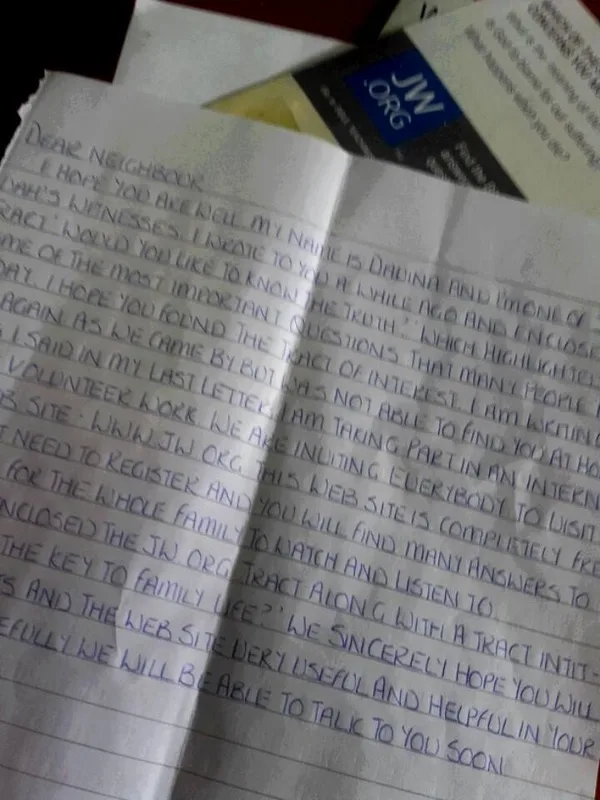 JW
.ORG
What is the meaning of
Is God to blame for our suffering
What happens when you die?
Find the
DEAR NEIGHBOUR
I HOPE YOU ARE WELL. MY NAME IS DADINA AND I'M ONE OF
OAH'S WITNESSES. I WROTE TO YOU A WHILE AGO AND ENCLOSE
RACT 'WOULD YOU LIKE TO KNOW THE TRUTH?' WHICH HIGHLIGHTE
ME OF THE MOST IMPORTANT QUESTIONS THAT MANY PEOPLE
DAY. I HOPE YOU FOUND THE TRACT OF INTEREST. I AM WRITING
AGAIN AS WE CAME BY BUT WAS NOT ABLE TO FIND YOU AT HO
S I SAID IN MY LAST LETTER, I AM TAKING PART IN AN INTERN
VOLUNTEER WORK. WE ARE INVITING EVERYBODY TO VISIT
B SITE - WWW.JW.ORG. THIS WEB SITE IS COMPLETELY FRE
T NEED TO REGISTER AND YOU WILL FIND MANY ANSWERS TO
FOR THE WHOLE FAMILY TO WATCH AND LISTEN TO.
NCLOSED THE JW.ORG TRACT ALONG WITH A TRACT INTIT-
THE KEY TO FAMILY LIFE?' WE SINCERELY HOPE YOU WILL
S AND THE WEB SITE VERY USEFUL AND HELPFUL IN YOUR
EFULLY WE WILL BE ABLE TO TALK TO YOU SOON